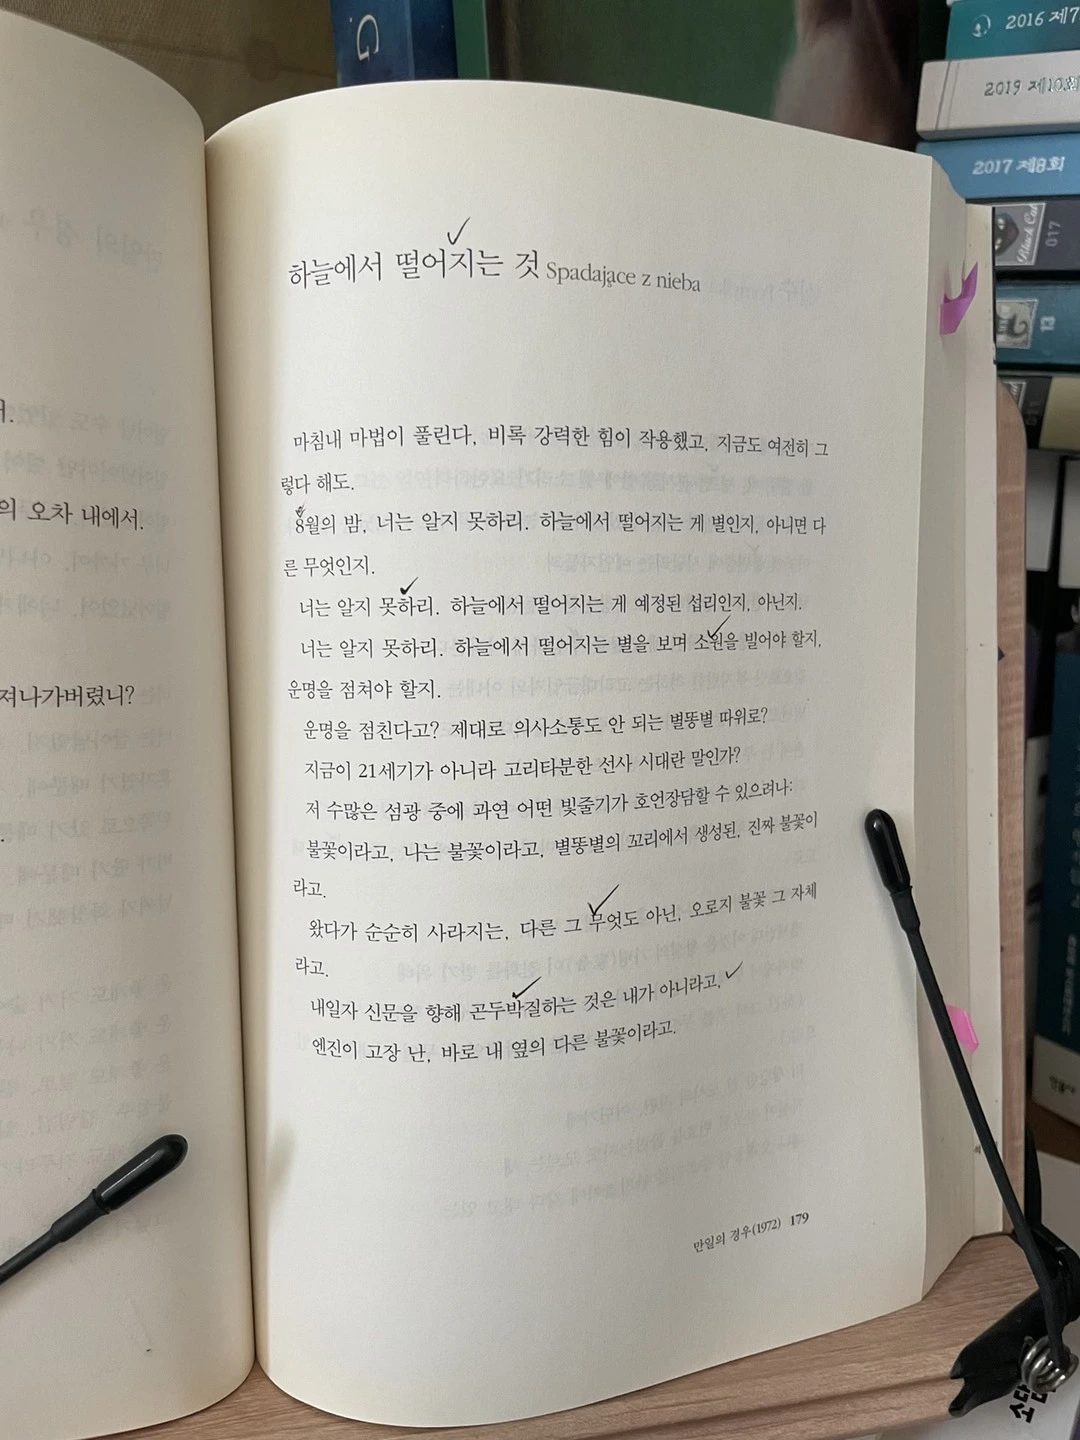 서.
의 오차 내에서.
져나가버렸니?
하늘에서 떨어지는 것 Spadające z nieba
마침내 마법이 풀린다, 비록 강력한 힘이 작용했고, 지금도 여전히 그
렇다 해도.
8월의 밤, 너는 알지 못하리. 하늘에서 떨어지는 게 별인지, 아니면 다
른 무엇인지.
너는 알지 못하리. 하늘에서 떨어지는 게 예정된 섭리인지, 아닌지.
너는 알지 못하리. 하늘에서 떨어지는 별을 보며 소원을 빌어야 할지,
운명을 점쳐야 할지.
운명을 점친다고? 제대로 의사소통도 안 되는 별똥별 따위로?
지금이 21세기가 아니라 고리타분한 선사 시대란 말인가?
저 수많은 섬광 중에 과연 어떤 빛줄기가 호언장담할 수 있으려나:
불꽃이라고, 나는 불꽃이라고, 별똥별의 꼬리에서 생성된, 진짜 불꽃이
라고.
왔다가 순순히 사라지는, 다른 그 무엇도 아닌, 오로지 불꽃 그 자체
라고.
내일자 신문을 향해 곤두박질하는 것은 내가 아니라고,
엔진이 고장 난, 바로 내 옆의 다른 불꽃이라고.
만일의 경우(1972) 179
2016 제7
2019 제10회
2017 제8회
Black Cat
017